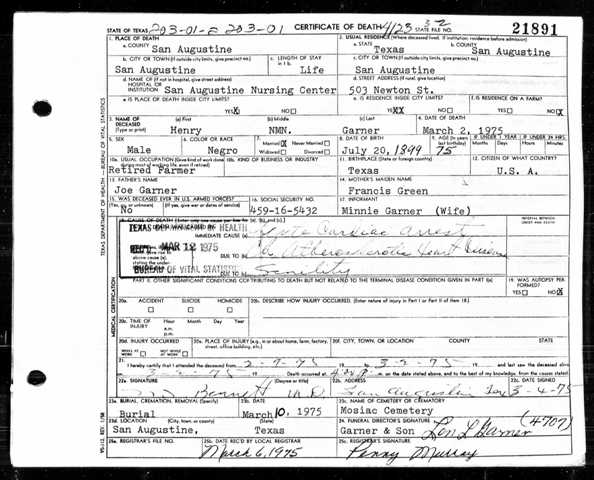 STATE OF TEXAS 203-01-E 203-01 CERTIFICATE OF DEATH 4123 32 STATE FILE NO. 21891
1. PLACE OF DEATH 2. USUAL RESIDENCE (Where deceased lived. If institution: residence before admission)
a. COUNTY San Augustine a. STATE Texas b. COUNTY San Augustine
b. CITY OR TOWN (If outside city limits, give precinct no.) c. LENGTH OF STAY in 1 b. c. CITY OR TOWN (If outside city limits, give precinct no.)
San Augustine Life San Augustine
d. NAME OF (If not in hospital, give street address) d. STREET ADDRESS (If rural, give location)
HOSPITAL OR INSTITUTION San Augustine Nursing Center 503 Newton St.
e. IS PLACE OF DEATH INSIDE CITY LIMITS? e. IS RESIDENCE INSIDE CITY LIMITS? f. IS RESIDENCE ON A FARM?
YES X NO YES XX NO YES NO X
3. NAME OF DECEASED (Type or print) (a) First (b) Middle (c) Last 4. DATE OF DEATH
Henry NMN. Garner March 2, 1975
5. SEX 6. COLOR OR RACE 7. Married X Never Married 8. DATE OF BIRTH 9. AGE (In years last birthday) IF UNDER 1 YEAR IF UNDER 24 HRS.
Male Negro Widowed Divorced July 20, 1899 75 Months Days Hours Minutes
10a. USUAL OCCUPATION (Give kind of work done during most of working life, even if retired) 10b. KIND OF BUSINESS OR INDUSTRY 11. BIRTHPLACE (State or foreign country) 12. CITIZEN OF WHAT COUNTRY?
Retired Farmer Texas U. S. A.
13. FATHER'S NAME 14. MOTHER'S MAIDEN NAME
Joe Garner Francis Green
15. WAS DECEASED EVER IN U.S. ARMED FORCES? 16. SOCIAL SECURITY NO. 17. INFORMANT
(Yes, no, or unknown) (If yes, give war or dates of service)
No 459-16-5432 Minnie Garner (Wife)
18. CAUSE OF DEATH INTERVAL BETWEEN ONSET AND DEATH
TEXAS HEALTH
IMMEDIATE CAUSE (a) Acute Cardiac arrest
REC'D MAR 12 1975 DUE TO (b) Atherosclerotic Heart Disease
BUREAU OF VITAL STATISTICS DUE TO (c) Senility
PART II. OTHER SIGNIFICANT CONDITIONS CONTRIBUTING TO DEATH BUT NOT RELATED TO THE TERMINAL DISEASE CONDITION GIVEN IN PART I(a) 19. WAS AUTOPSY PERFORMED?
YES NO X
20a. ACCIDENT SUICIDE HOMICIDE 20b. DESCRIBE HOW INJURY OCCURRED. (Enter nature of injury in Part I or Part II of Item 18.)
20c. TIME OF INJURY Hour Month Day Year
a.m.
p.m.
20d. INJURY OCCURRED 20e. PLACE OF INJURY (e.g., in or about home, farm, factory, street, office building, etc.) 20f. CITY, TOWN, OR LOCATION COUNTY STATE
WHILE AT WORK NOT WHILE AT WORK
21. I hereby certify that I attended the deceased from 2-9-75 19 to 3-2-75 19 and last saw the deceased alive
Death occurred at m. on the date stated above, and to the best of my knowledge, from the causes stated
22a. SIGNATURE (Degree or title) 22b. ADDRESS 22c. DATE SIGNED
Bennett M.D. San Augustine Tex 3-4-75
23a. BURIAL, CREMATION, REMOVAL (Specify) 23b. DATE 23c. NAME OF CEMETERY OR CREMATORY
Burial March 10, 1975 Mosiac Cemetery
23d. LOCATION (City, town, or county) (State) 24. FUNERAL DIRECTOR'S SIGNATURE (4707)
San Augustine, Texas Garner & Son Lon L Garner
25a. REGISTRAR'S FILE NO. 25b. DATE REC'D BY LOCAL REGISTRAR 25c. REGISTRAR'S SIGNATURE
March 6, 1975 Penny Murray
TEXAS DEPARTMENT OF HEALTH - BUREAU OF VITAL STATISTICS
MEDICAL CERTIFICATION
VS-112, REV. 1/58